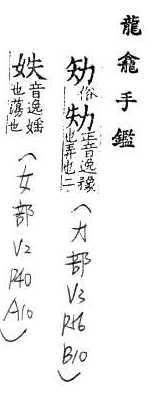 龍龕手鑑
㔠俗劮正音逸豫也弄也二
(力部V3P56B10)
妷音逸婬也蕩也
(女部V2P40A10)